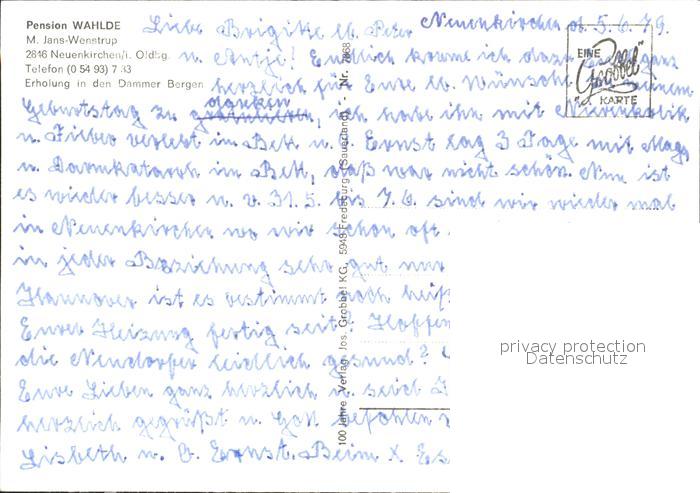 Pension WAHLDE
M. Jans-Wenstrup
2846 Neuenkirchen/i. Oldbg.
Telefon (0 54 93) 7 33
Erholung in den Dammer Bergen
Neuenkirchen d. 5.6.79.
Liebe Brigitte lb. Peter
u. Antje! Endlich komme ich dazu ganz
herzlich für Eure lb. Wünsche zu meinem
Geburtstag zu danken, ich habe ihn mit Nierenkolik
u. Fieber verlebt im Bett u. Ernst lag 3 Tage mit Mag
u. Darmkatarrh im Bett, daß war nicht schön. Nun ist
es wieder besser u. v. 31.5. bis 7.6. sind wir wieder mal
in Neuenkirchen wo wir schon oft
in jeder Beziehung sehr gut nur
Hannover ist es bestimmt noch heiß
Eure Heizung fertig seit? Hoffen
die Neudorfer leidlich gesund?
Eure Lieben ganz herzlich u. seid
herzlich gegrüßt u. Gott befohlen
Lisbeth u. Ernst. Beim X. Es
EINE
Grobbel
KARTE
100 Jahre Verlag Jos. Grobbel KG, 5948 Fredeburg (Sauerland) - Nr. 7868
privacy protection
Datenschutz